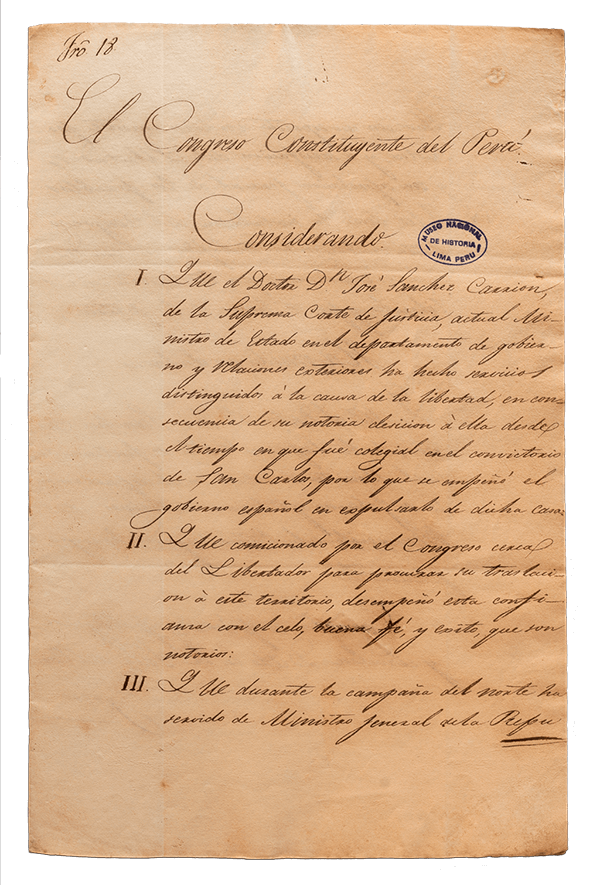 Fro. 18
El Congreso Constituyente del Perú.
Considerando.
MUSEO NACIONAL
DE HISTORIA
LIMA PERU
I. Que el Doctor Dn José Sanchez Carrion,
de la Suprema Corte de Justicia, actual Mi-
nistro de Estado en el departamento de gobier-
no y relaciones exteriores ha hecho servicios
distinguidos à la causa de la libertad, en con-
secuencia de su notoria desicion à ella desde
el tiempo en que fué colegial en el convictorio
de San Carlos, por lo que se empeñó el
gobierno español en expulsarlo de dicha casa:
II. Que comicionado por el Congreso cerca
del Libertador para procurar su traslaci-
on à este territorio, desempeñó esta confi-
anza con el celo, buena fé, y exito, que son
notorios:
III. Que durante la campaña del norte ha
servido de Ministro jeneral de la Repu